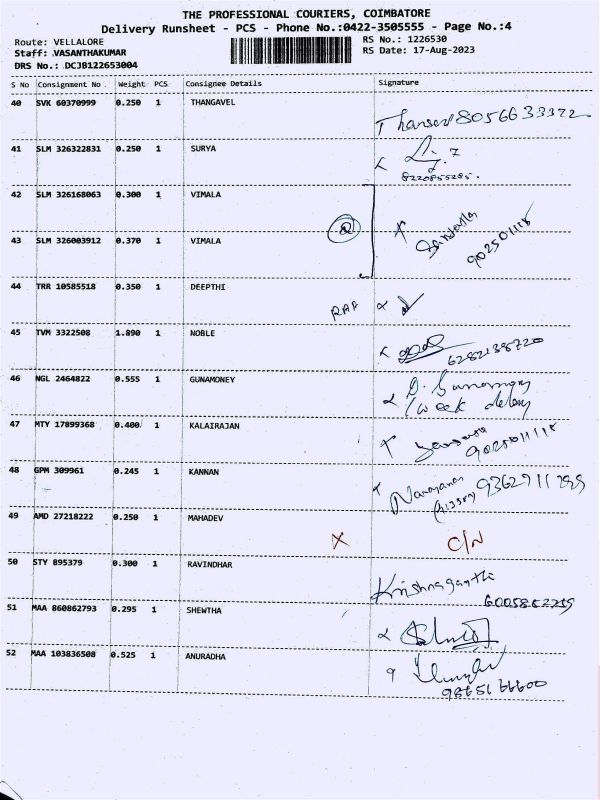 THE PROFESSIONAL COURIERS, COIMBATORE
Delivery Runsheet - PCS - Phone No.:0422-3505555 - Page No.:4
Route: VELLALORE RS No.: 1226530
Staff: .VASANTHAKUMAR RS Date: 17-Aug-2023
DRS No.: DCJB122653004
S No Consignment No Weight PCS Consignee Details Signature
40 SVK 60370999 0.250 1 THANGAVEL
8056633372
41 SLM 326322831 0.250 1 SURYA
8220855285.
42 SLM 326168063 0.300 1 VIMALA
43 SLM 326003912 0.370 1 VIMALA
44 TRR 10585518 0.350 1 DEEPTHI
45 TVM 3322508 1.890 1 NOBLE
6282138720
46 NGL 2464822 0.555 1 GUNAMONEY
1 week delay
47 MTY 17899368 0.400 1 KALAIRAJAN
9025011118
48 GPM 309961 0.245 1 KANNAN
49 AMD 27218222 0.250 1 MAHADEV
X C/N
50 STY 895379 0.300 1 RAVINDHAR
51 MAA 860862793 0.295 1 SHEWTHA
52 MAA 103836508 0.525 1 ANURADHA